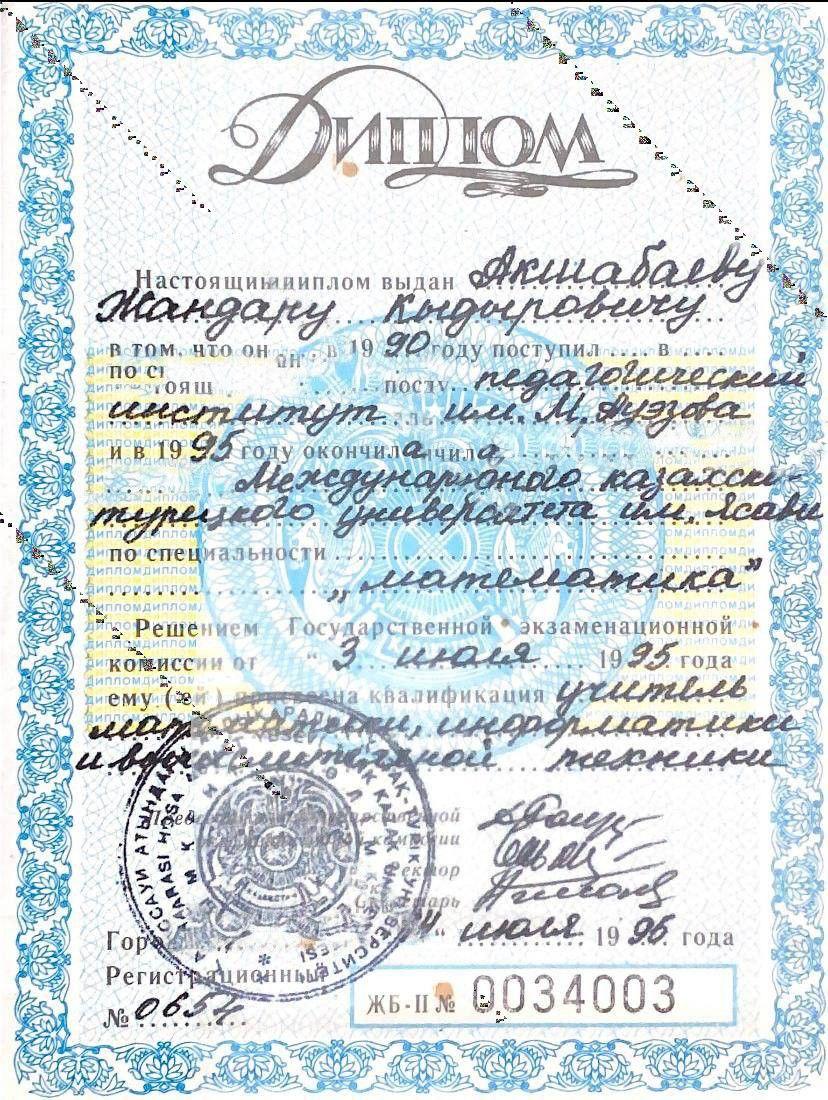 Диплом
Настоящий диплом выдан Акшабаеву
Жандару Кыдыровичу
в том, что он в 1990 году поступил в
педагогический
институт им. М. Ауэзова
и в 1995 году окончил
Международного казахско-
турецкого университета им. Ясави
по специальности
„математика"
Решением Государственной экзаменационной
комиссии от "3 июля 1995 года
ему (ей) присвоена квалификация учитель
математики, информатики
и вычислительной техники
июля 1995 года
Регистрационный
№ 0654
ЖБ-II № 0034003